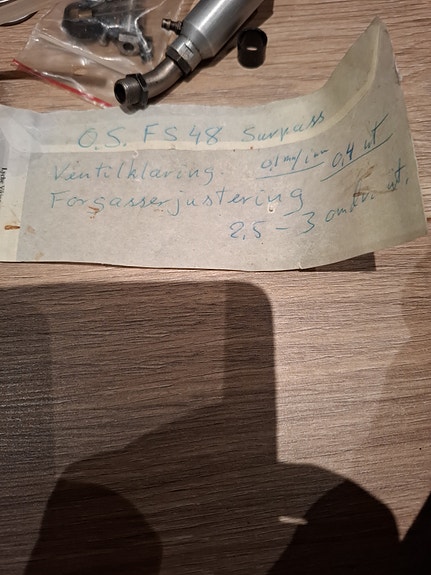 O.S. FS 48 Surpass
Ventilklaring 0,1 mm/inn 0,4 ut
Forgasserjustering
2,5 – 3 omdr. ut.